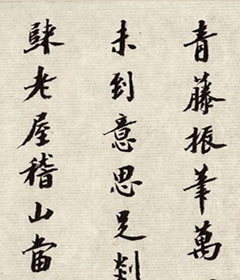 青藤振筆萬
未到意思足
老屋稽山當